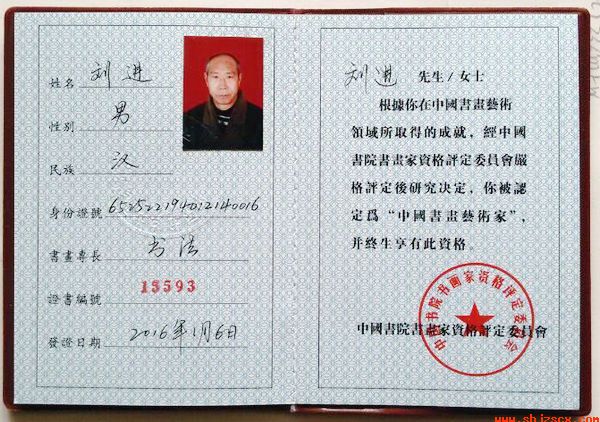 姓名 刘进
性别 男
民族 汉
身份證號 652522194012140016
書畫專長 书法
證書編號 13593
發證日期 2016年1月6日
刘进 先生/女士
根據你在中國書畫藝術
領域所取得的成就，經中國
書院書畫家資格評定委員會嚴
格評定後研究決定，你被認
定爲“中國書畫藝術家”，
并終生享有此資格。
中國書院書畫家資格評定委員會
中国书院书画家资格评定委员会